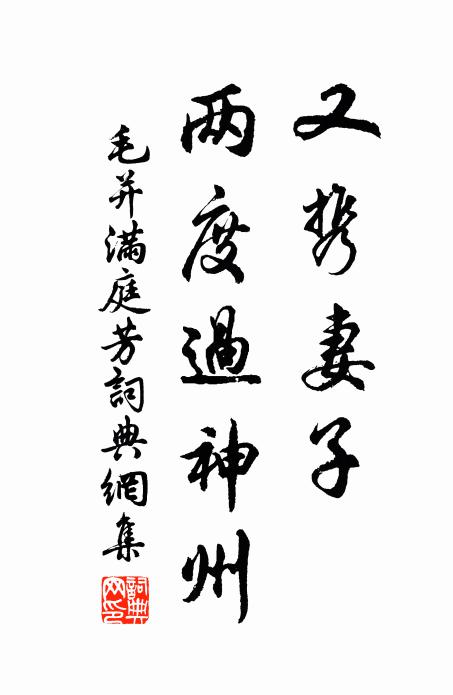 又携妻子
两度過神州
毛并滿庭芳詞典網集
詞典网印